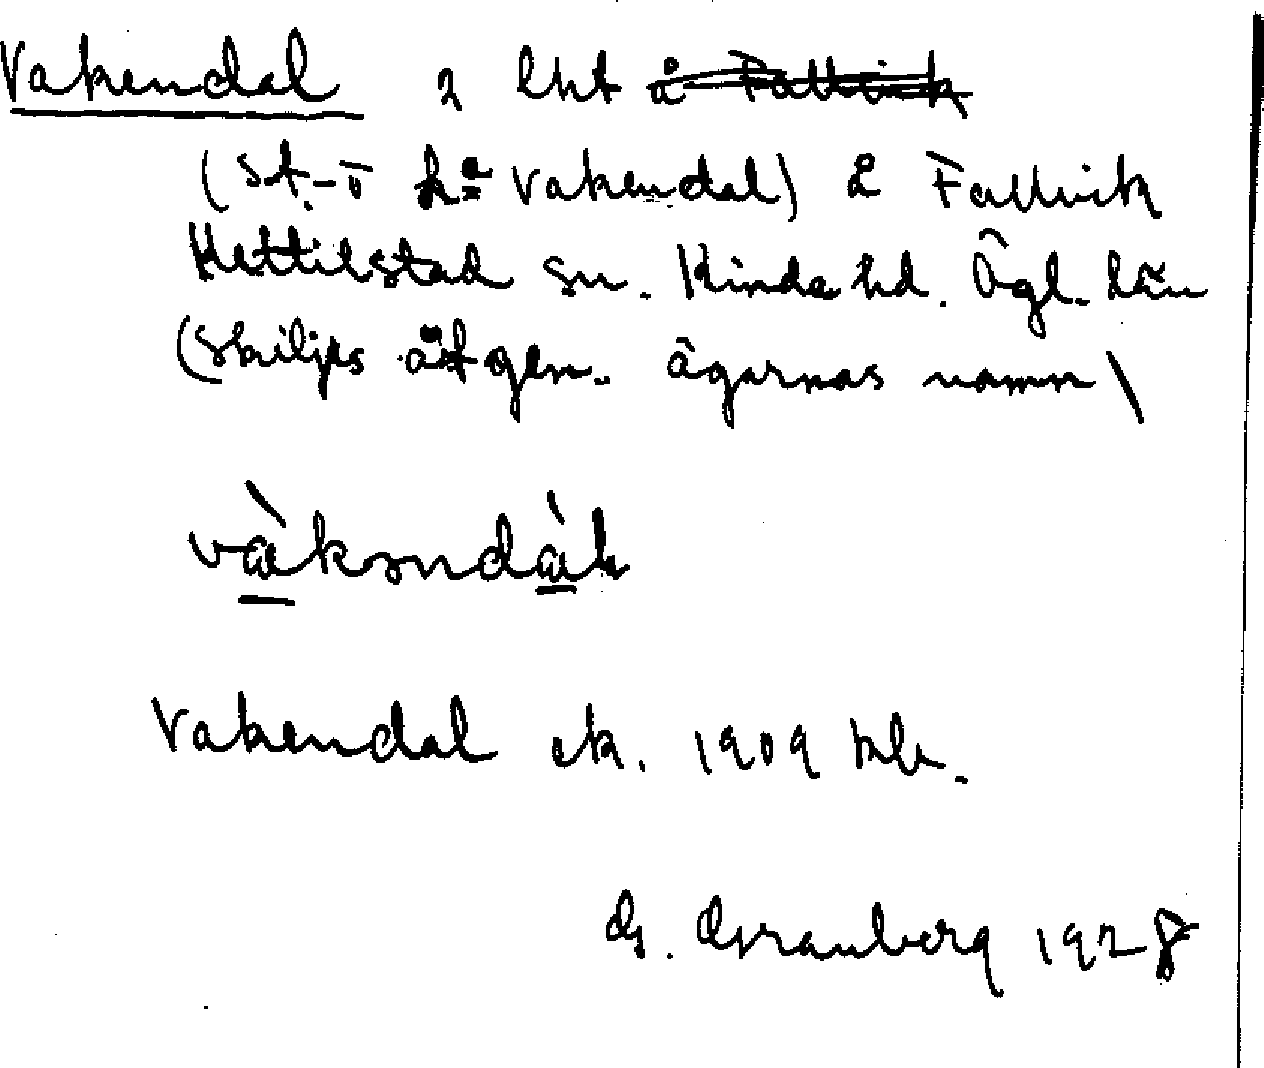 Vakendal 2 lht å Fallvik
(St.-o L:a Vakendal) å Fallvik
Kettilstad sn. Kinda hd. Ögl. län
(skiljes åt gm. ägarnas namn)
vàkəndàl
Vakendal ek. 1909 kbl.
G. Granberg 1928